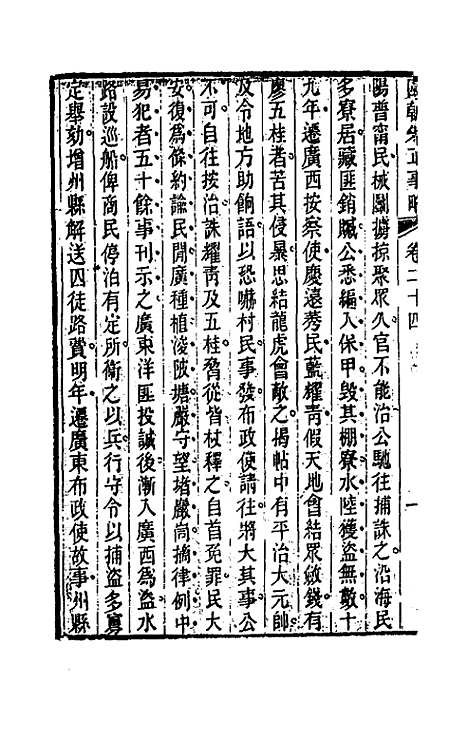 國朝先正事略 卷二十四 一
陽普甯民械鬬擄掠聚眾久官不能治公馳往捕誅之沿海民
多寮居藏匪銷贓公悉編入保甲毀其棚寮水陸獲盜無數十
九年遷廣西按察使慶遠莠民藍耀靑假天地會結眾斂錢有
廖五桂者苦其侵暴思結龍虎會敵之揭帖中有平治大元帥
及令地方助餉語以恐嚇村民事發布政使請往將大其事公
不可自往按治誅耀靑及五桂脅從皆杖釋之自首免罪民大
安復爲條約諭民開廣種植浚陂塘嚴守望堵嚴峝摘律例中
易犯者五十餘事刊示之廣東洋匪投誠後漸入廣西爲盜水
路設巡船俾商民停泊有定所衛之以兵行守令以捕盜多寡
定舉劾增州縣解送囚徒路費明年遷廣東布政使故事州縣